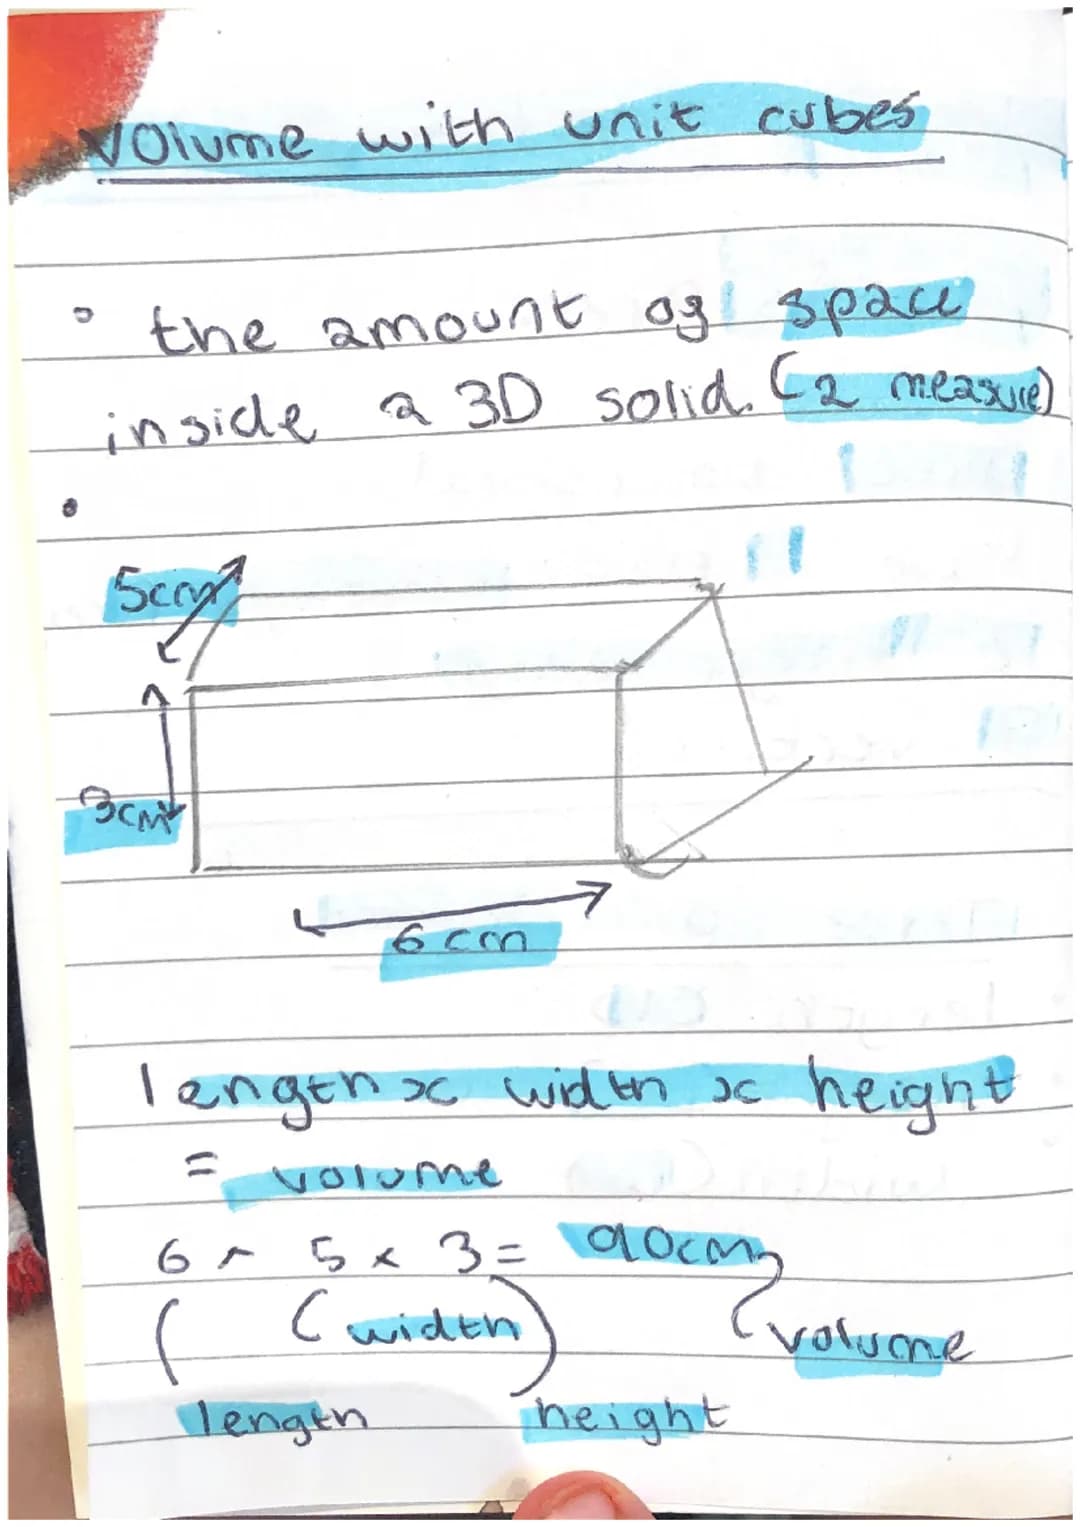 Volume with unit cubes
• the amount of space
inside a 3D solid. (a measure)
•
5cm
3cm
6 cm
length x width x height
= volume
6 x 5 x 3 = 90cm
(width) volume
length height